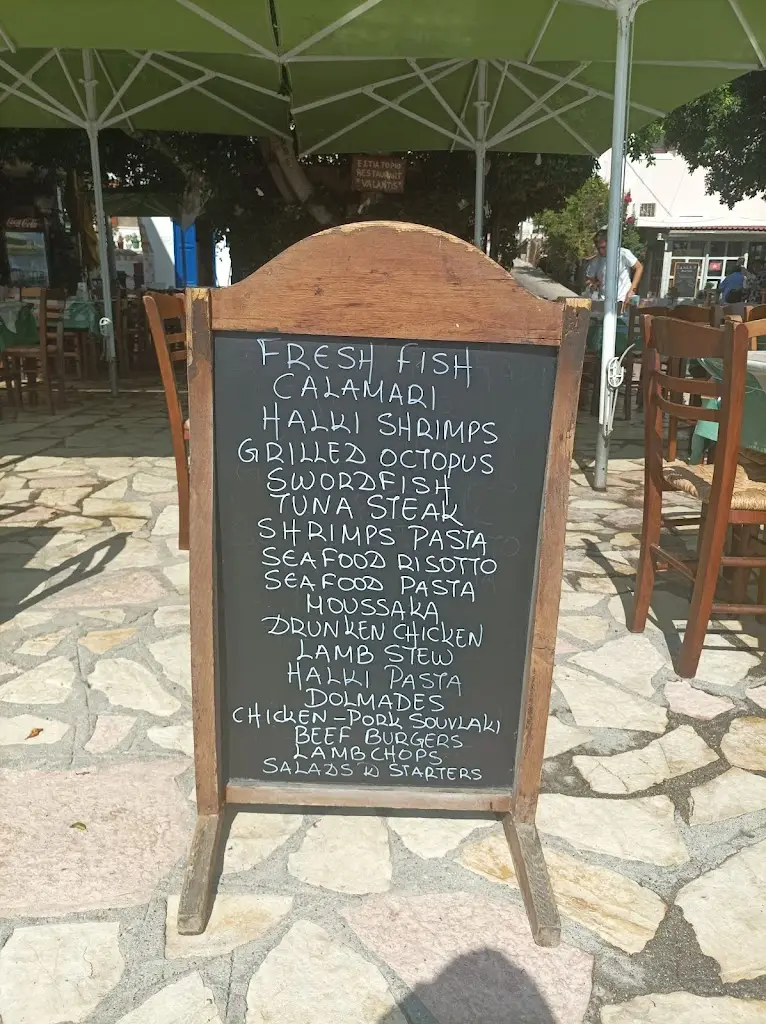 ΕΣΤΙΑΤΟΡΙΟ
RESTAURANT
"VALANTIS"
Coca-Cola
FRESH FISH
CALAMARI
HALKI SHRIMPS
GRILLED OCTOPUS
SWORDFISH
TUNA STEAK
SHRIMPS PASTA
SEAFOOD RISOTTO
SEAFOOD PASTA
MOUSSAKA
DRUNKEN CHICKEN
LAMB STEW
HALKI PASTA
DOLMADES
CHICKEN-PORK SOUVLAKI
BEEF BURGERS
LAMB CHOPS
SALADS N STARTERS